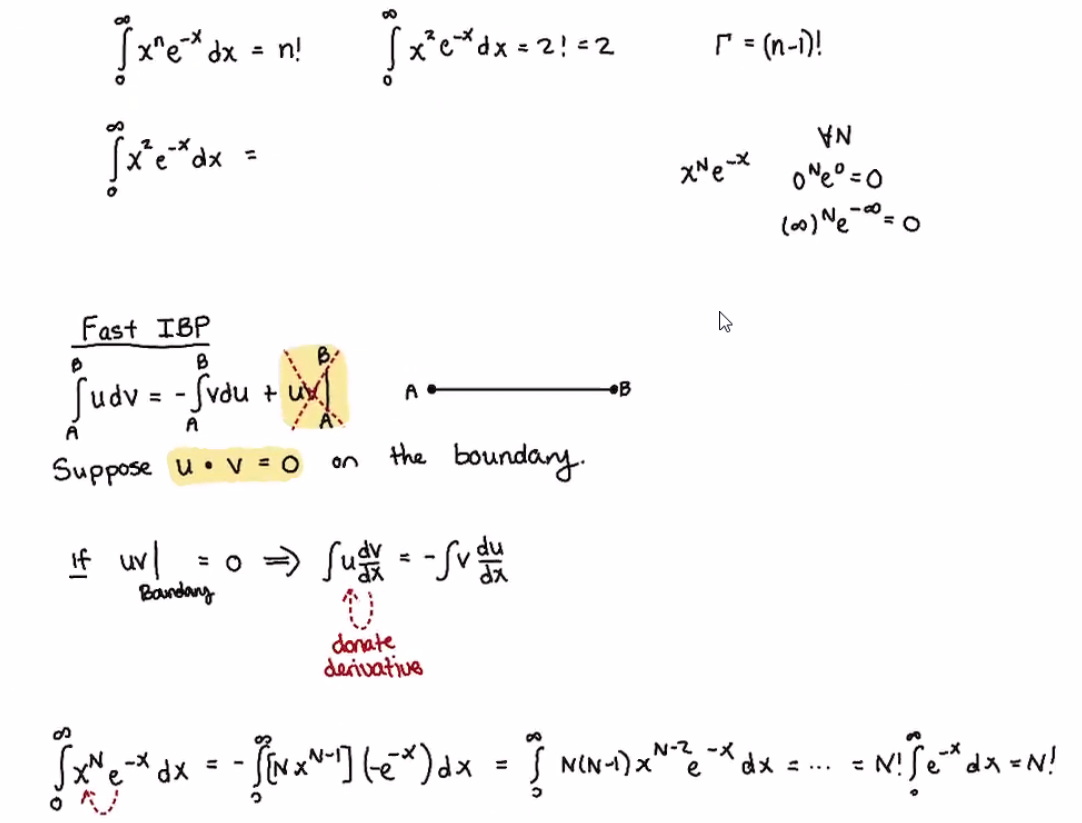 ∫₀^∞ xⁿe⁻ˣ dx = n!    ∫₀^∞ x²e⁻ˣ dx = 2! = 2    Γ = (n-1)!
∀N
∫₀^∞ x²e⁻ˣ dx =    x^N e^-x    0^N e^0 = 0
(∞)^N e^-∞ = 0
Fast IBP
∫_A^B u dv = - ∫_A^B v du + uv|_A^B    A B
Suppose u • v = 0 on the boundary.
If uv| = 0 ⇒ ∫u dv/dx = -∫v du/dx
Boundary
donate
derivative
∫₀^∞ x^N e^-x dx = - ∫₀^∞ [N x^N-1] (-e^-x) dx = ∫₀^∞ N(N-1) x^N-2 e^-x dx = ... = N! ∫₀^∞ e^-x dx = N!